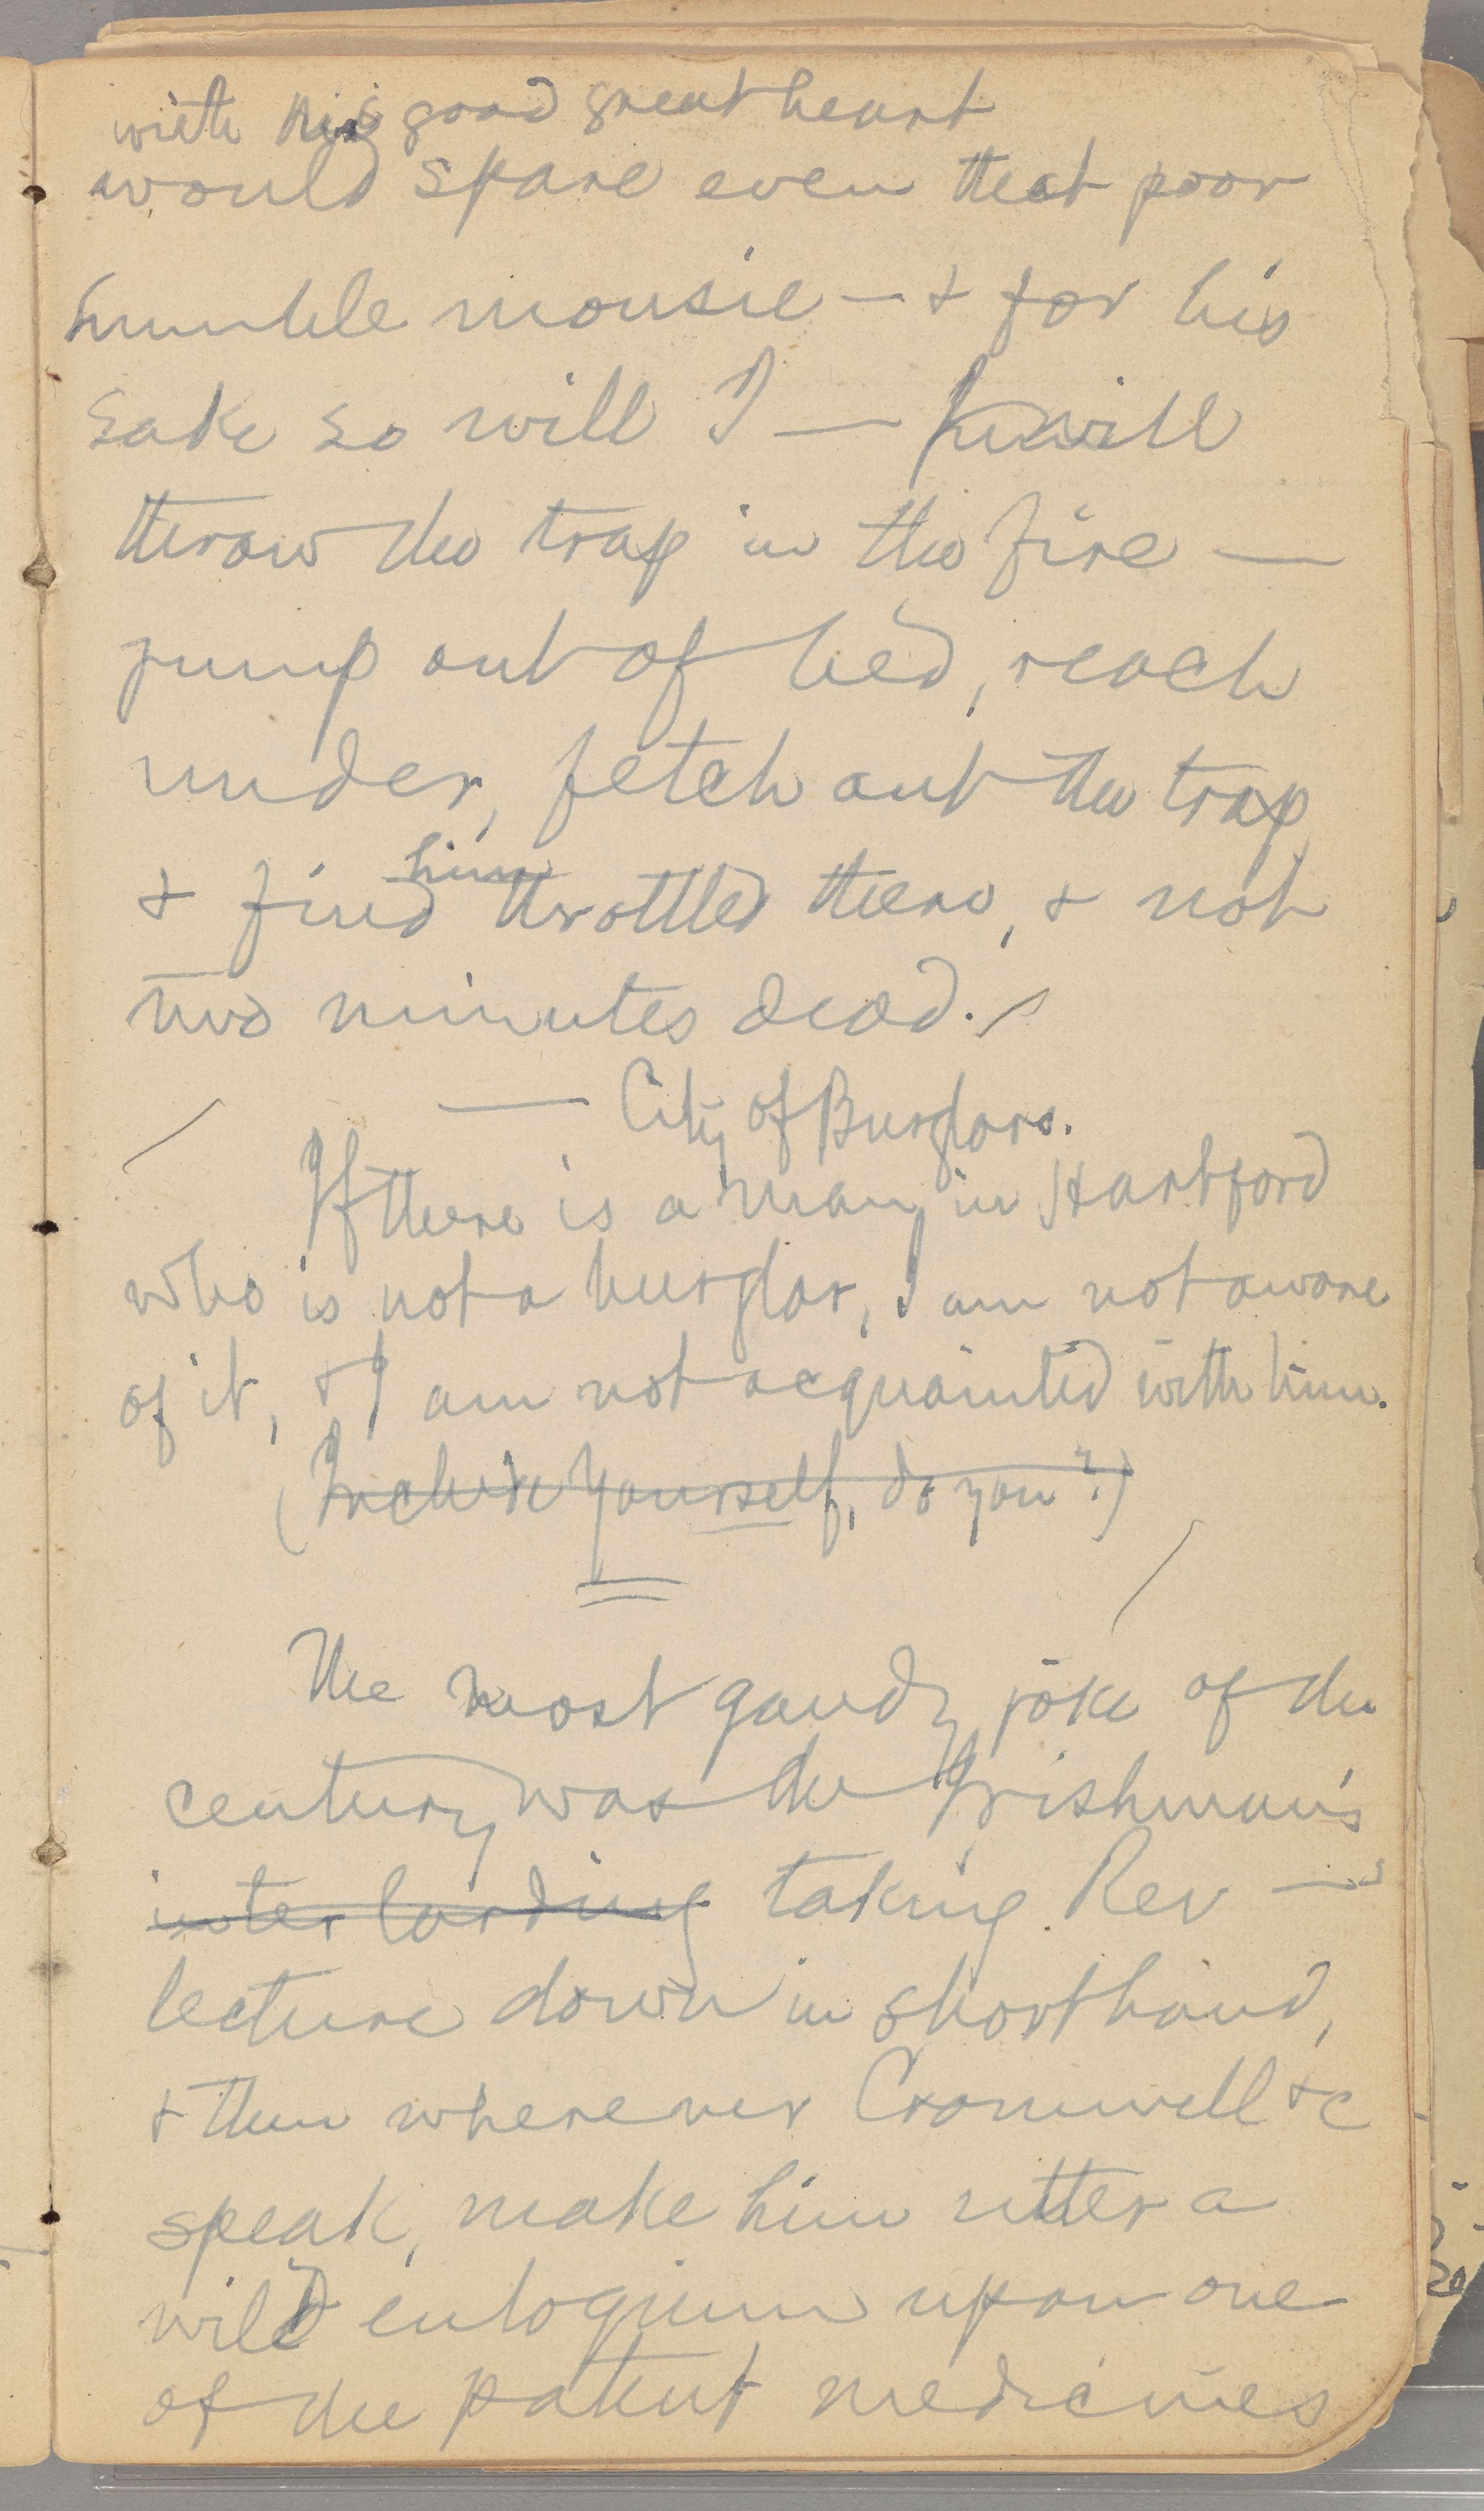 with his good great heart
would spare even that poor
humble mousie — & for his
sake so will I — I will
throw the trap in the fire —
jump out of bed, reach
under, fetch out the trap,
& find him throttled there, & not
two minutes dead.
— City of Burglars.
If there is a man in Hartford
who is not a burglar, I am not aware
of it, & I am not acquainted with him.
(Include yourself, do you?)
The most gaudy joke of the
century was the Irishman's
interlarding taking Rev —'s
lecture down in shorthand,
& then wherever Cromwell &c
speak, make him utter a
wild eulogium upon one
of the patent medicines